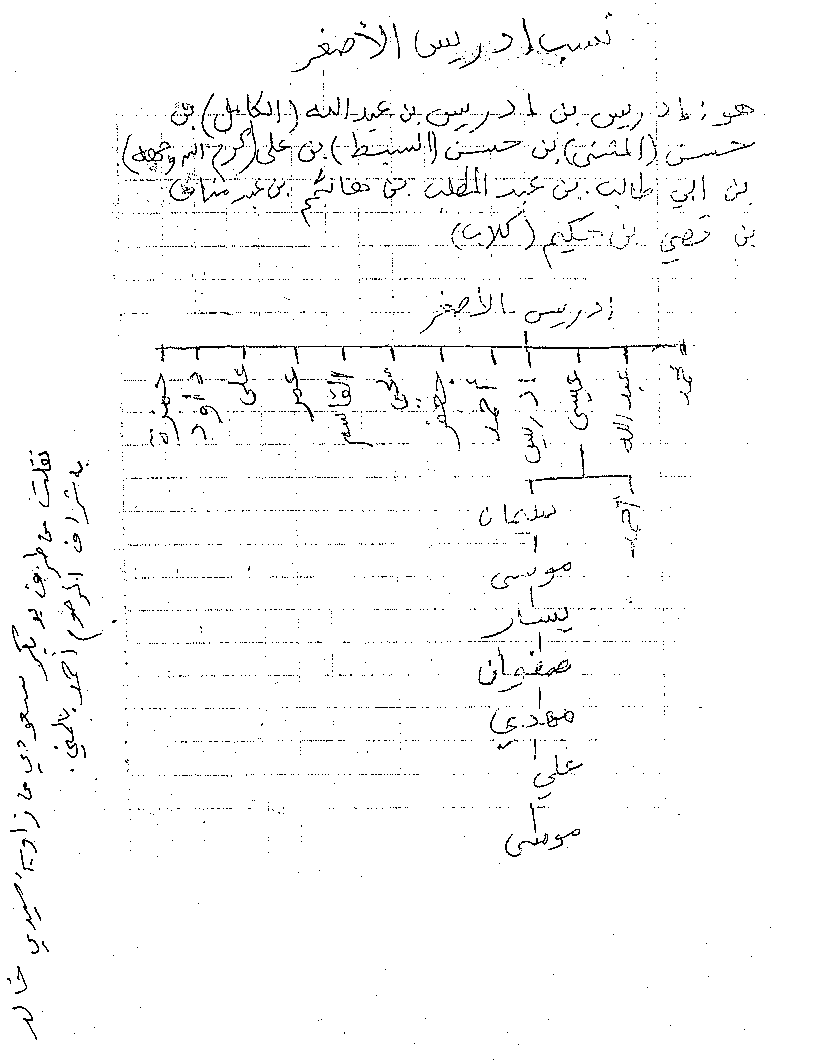 نسب ادريس الأصغر
هو: ادريس بن ادريس بن عبد الله (الكامل) بن
حسن (المثنى) بن حسن (السبط) بن علي (كرم الله وجهه)
بن ابي طالب بن عبد المطلب بن هاشم بن عبد مناف
بن قصي بن حكيم (كلاب)
ادريس الأصغر
محمد
عبد الله
عيسى
ادريس
أحمد
جعفر
يحي
القاسم
عمر
علي
داود
حمزة
أحمد
سليمان
موسى
يسار
صفوان
مهدي
علي
موسى
نقلت من طرف بو بكر سعودي من زاوية سيدي خالد
باشراف المرحوم أحمد